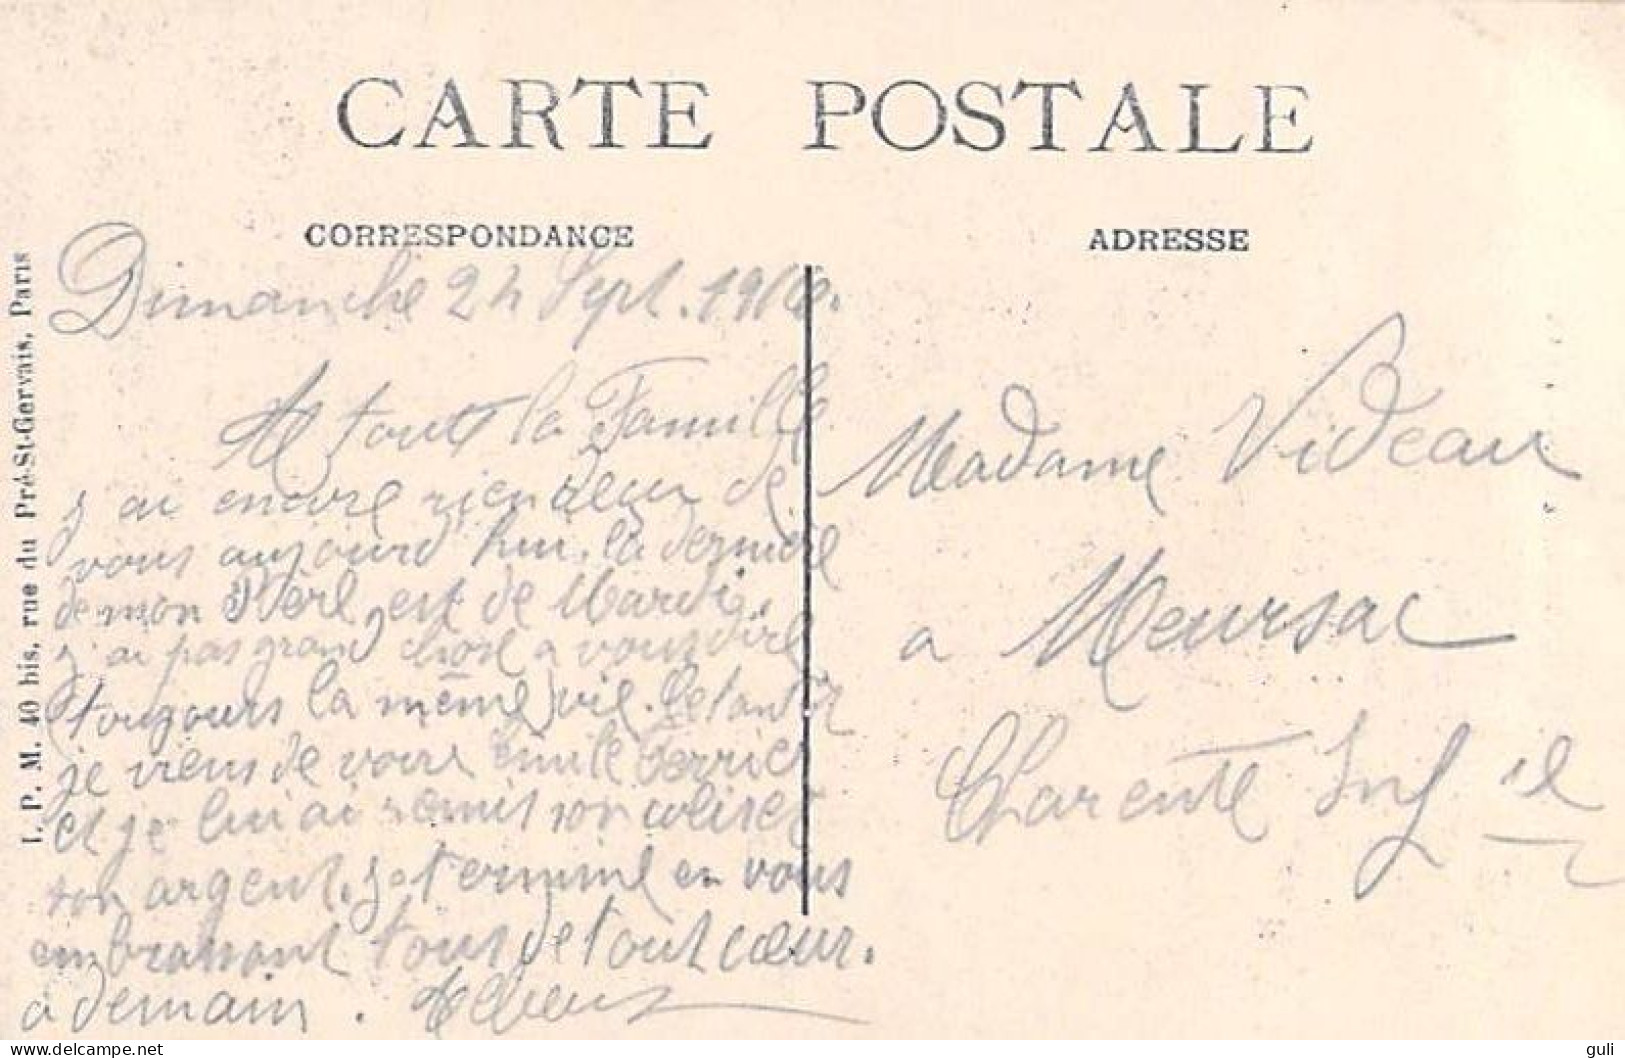 CARTE POSTALE
CORRESPONDANCE
ADRESSE
I. P. M. 40 bis, rue du Pré-St-Gervais, Paris
Dimanche 24 Sept. 1916.
A toute la Famille
j ai encore rien reçu de
vous aujourd hui. la dernière
de mon Père, est de Mardi,
j'ai pas grand chose a vous dire
toujours la même vie.
je viens de voir Emile Perrier
et je lui ai remis son colis et
son argent. je termine en vous
embrassant tous de tout cœur.
à demain.
Madame Videau
a Meursac
Charente Inf
delcampe.net
guli